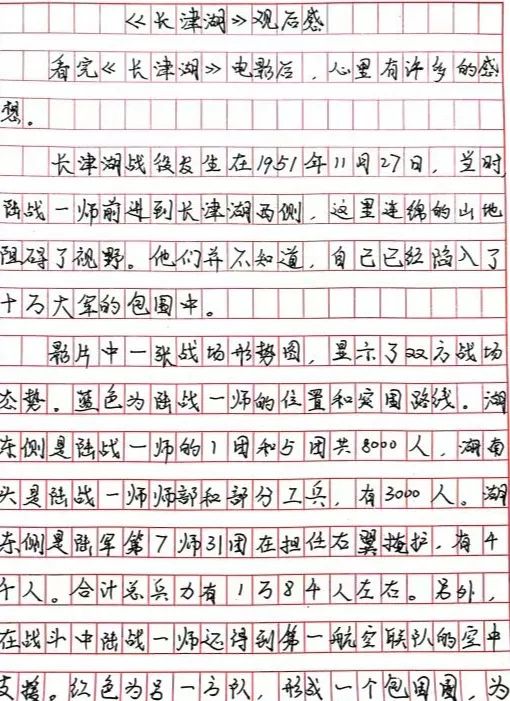 《长津湖》观后感
看完《长津湖》电影后，心里有许多的感
想。
长津湖战役发生在1951年11月27日，当时
陆战一师前进到长津湖西侧，这里连绵的山地
阻碍了视野。他们并不知道，自己已经陷入了
十万大军的包围中。
影片中一张战场形势图，显示了双方战场
态势。蓝色为陆战一师的位置和突围路线。湖
东侧是陆战一师的1团和5团共8000人，湖南
头是陆战一师师部和部分工兵，有3000人。湖
东侧是陆军第7师31团在担任右翼掩护，有4
千人。合计总兵力有1万8千人左右。另外，
在战斗中陆战一师还得到第一航空联队的空中
支援。红色为另一方队，形成一个包围圈，为